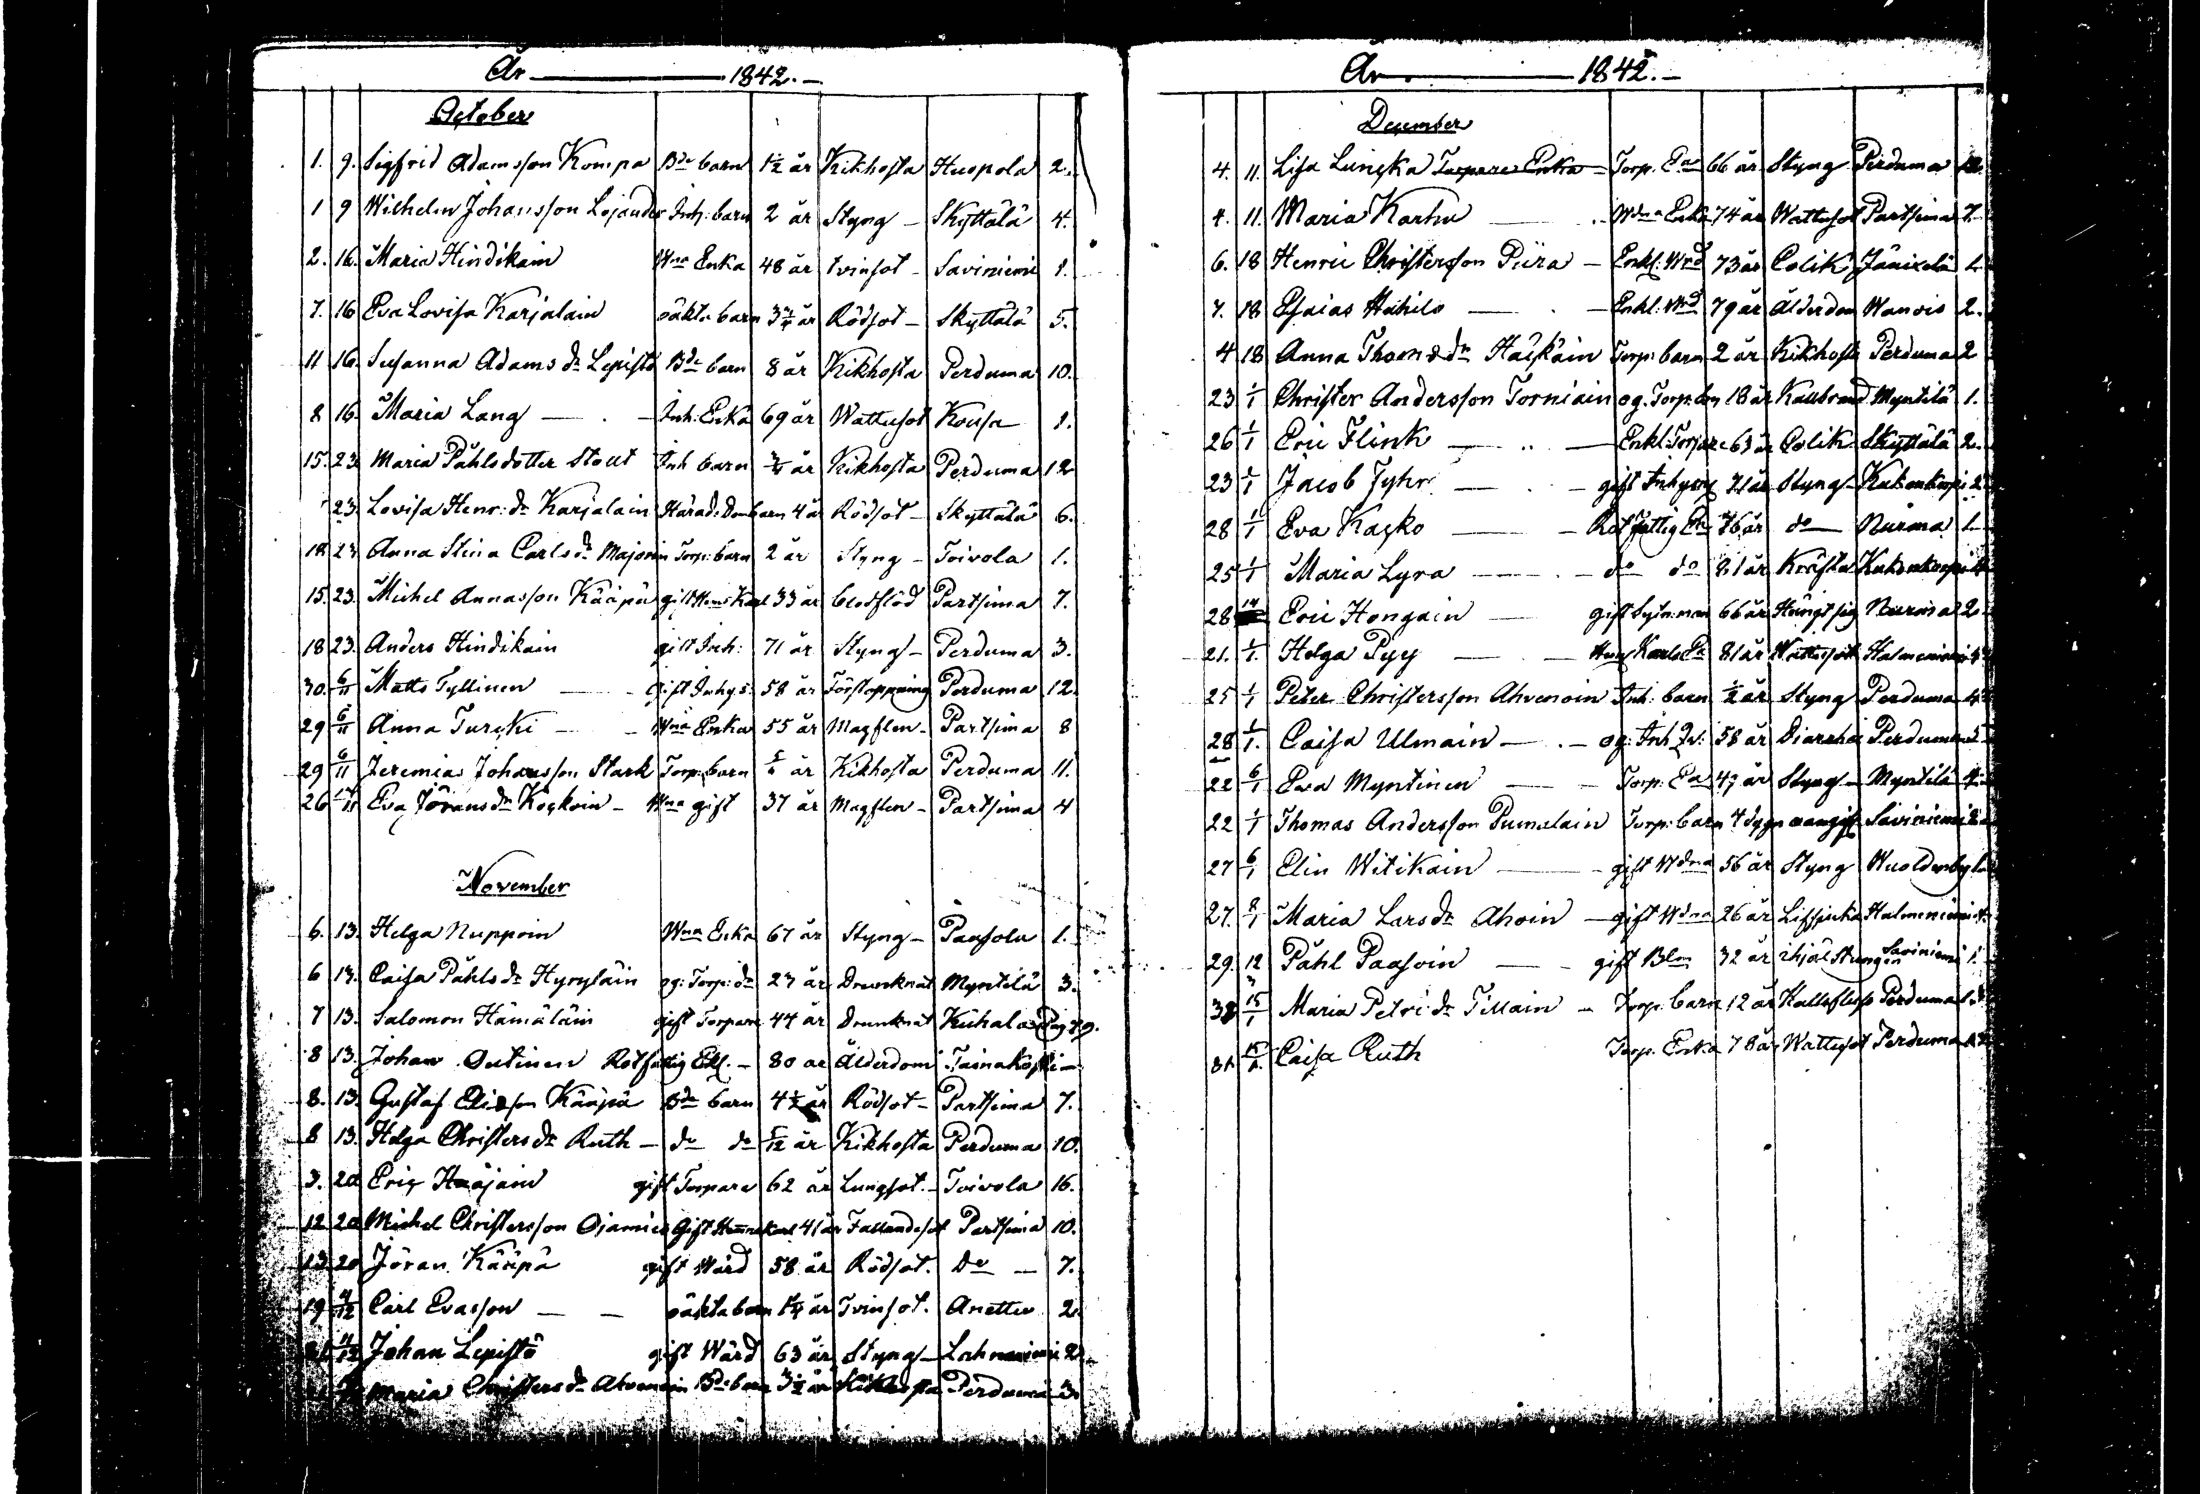 År 1842.
October
1. 9. Sigfrid Adamsson Kompa Bde barn 1½ år Kikhosta Huopola 2.
1 9 Wilhelm Johansson Lojander Inh: barn 2 år Styng Skyttälä 4.
2. 16. Maria Hindikain Wna Enka 48 år tvinsot Saviniemi 1.
7. 16 Eva Lovisa Karjalain oäkta barn 3 år Rödsot Skyttälä 5.
11 16. Susanna Adams dr Lepistö Bde barn 8 år Kikhosta Perduma 10.
8 16. Maria Lang Inh: Enka 69 år Wattusot Kousa 1.
15. 23. Maria Påhlsdotter Stolt Inh barn ¾ år Kikhosta Perduma 12
23. Lovisa Henr: dr Karjalain barn 4 år Rödsot Skyttälä 6.
18 23 Anna Stina Carls dr Majorin Torp: barn 2 år Styng Toivola 1.
15. 23. Michel Annasson Kääpä gift 33 år blodflöd Partsima 7.
18 23. Anders Hindikain gift Inh: 71 år Styng Perduma 3.
30. 6/11 Matts Tyllinen gift Inhys. 58 år Förstoppning Perduma 12.
29 6/11 Anna Turcki Wna Enka 55 år Magflen Partsima 8
29 6/11 Jeremias Johansson Stark Torp. barn år Kikhosta Perduma 11.
26 Eva Jörans dr Kockoin Wna gift 37 år Magflen Partsima 4
November
6. 13. Helga Nuppoin Wna Enka 67 år Styng Paasola 1.
6 13. Caisa Påhls dr Hyrylain og: Torp: dr 23 år Drunknat Myntilä 3.
7 13. Salomon Hämäläin gift Torpare 44 år Drunknat Kuhala
8 13. Johan Outinen Rotfattig Enkl. 80 år Ålderdom
8. 13. Gustaf Kääpä Bde barn 4½ år Rödsot Partsima 7.
8 13. Helga Christers dr Ruth do do 5/12 år Kikhosta Perduma 10.
3. 20 Eric gift Torpare 62 år Lungsot. Toivola 16.
12 20 Michel Christersson Gift 41 år Fallandesot Partsima 10.
13. 20 Jöran Kääpä gift Wärd 58 år Rödsot. Do 7.
19 4/12 Carl Evasson oäkta barn år Tvinsot. Anettu 2.
4/12 Johan Lepistö gift Wärd 63 år Styng 2
Maria Christers dr Bde barn 3½ år Kikhosta Perduma 3.
År 1842.
December
4. 11. Lisa Torpare Enka Torp. Ea 66 år Styng Perduma
4. 11. Maria Karhu Wdna Enka 74 år Wattusot Partsima 7.
6. 18 Henric Christersson Piira Enkl: Wrd 73 år Colik
7. 18 Esaias Enkl: Wrd 79 år Ålderdom Wanois 2.
4 18 Anna Thoms dr Häckäin Torp: barn 2 år Kikhosta Perduma 2
23 1/1 Christer Andersson Torniain og. Torp. 18 år Kallbrand Myntilä 1.
26 1/1 Eric Flink Enkl: Torpare 63 år Colik Skyttälä 2.
23 1/1 Jacob Fyhr gift Inhyses 71 år Styng
28 1/1 Eva Kacko Rotfattig Ea 76 år do Nurma 1
25 1/1 Maria Lyra do do 81 år Kräfta
28 Eric Hongain gift Sytn:man 66 år Hängt sig Nurma 2
21. 1/1. Helga Pyy Ea 81 år Wattusot Halmeniemi
25 1/1 Peter Christersson Ahvenoin Inh: barn ½ år Styng Perduma
28 1/1. Caisa Ulmain og: Inh 58 år Diarrhé Perduma
22 6/1 Eva Myntinen Torp: Ea 47 år Styng Myntilä
22 1/1 Thomas Andersson Pumalain Torp: barn oangif. Saviniemi 2
27 6/1 Elin Witikain gift Wdna 56 år Styng
27. 8/1 Maria Lars dr Ahoin gift Wdna 26 år Halmeniemi
29. 12 Påhl Paasoin gift 32 år ihjälstungen Saviniemi 1.
15/1 Maria Petri dr Tillain Torp: barn 12 år Perduma
31. 15/1. Caisa Ruth Torp. Enka 78 år Wattusot Perduma